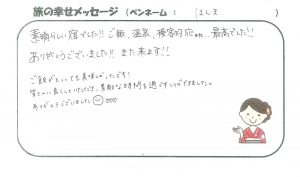 旅の幸せメッセージ（ペンネーム：　ましま　）
素晴らしい宿でした!! ご飯、温泉、接客対応 etc... 最高でした!!
ありがとうございました!! また来ます!!
ご飯がとっても美味しかったです!
皆さんに良くしていただき、素敵な時間を過ごすことができました。
ありがとうございました ooo